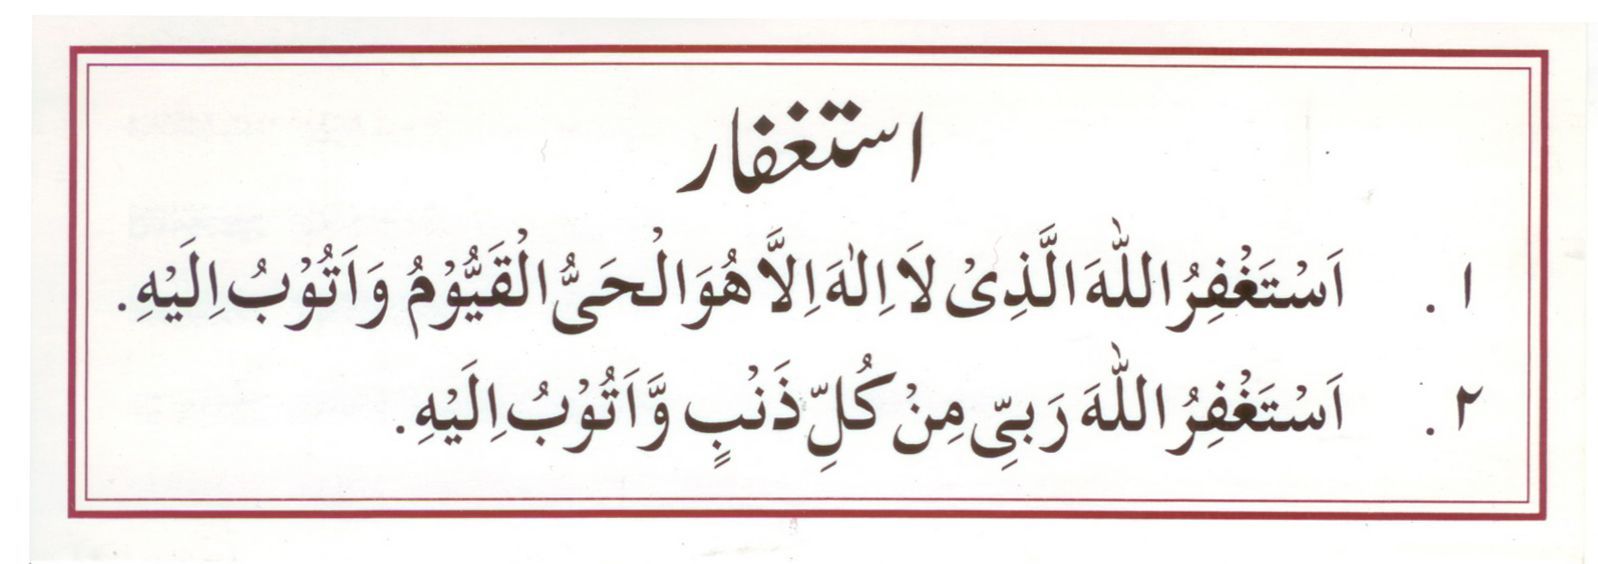 استغفار
١. اَسْتَغْفِرُ اللّٰهَ الَّذِىْ لَا اِلٰهَ اِلَّا هُوَ الْحَىُّ الْقَيُّوْمُ وَ اَتُوْبُ اِلَيْهِ.
٢. اَسْتَغْفِرُ اللّٰهَ رَبِّىْ مِنْ كُلِّ ذَنْۢبٍ وَّ اَتُوْبُ اِلَيْهِ.